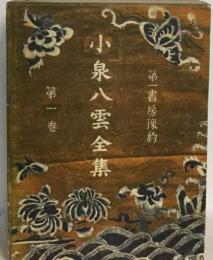 第一書房豫約
小泉八雲全集
第一巻